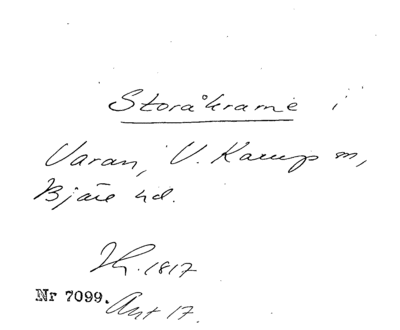 Storåkrarne i
Varan, V. Karup sn,
Bjäre hd.
1817
Nr 7099. Akt 17.